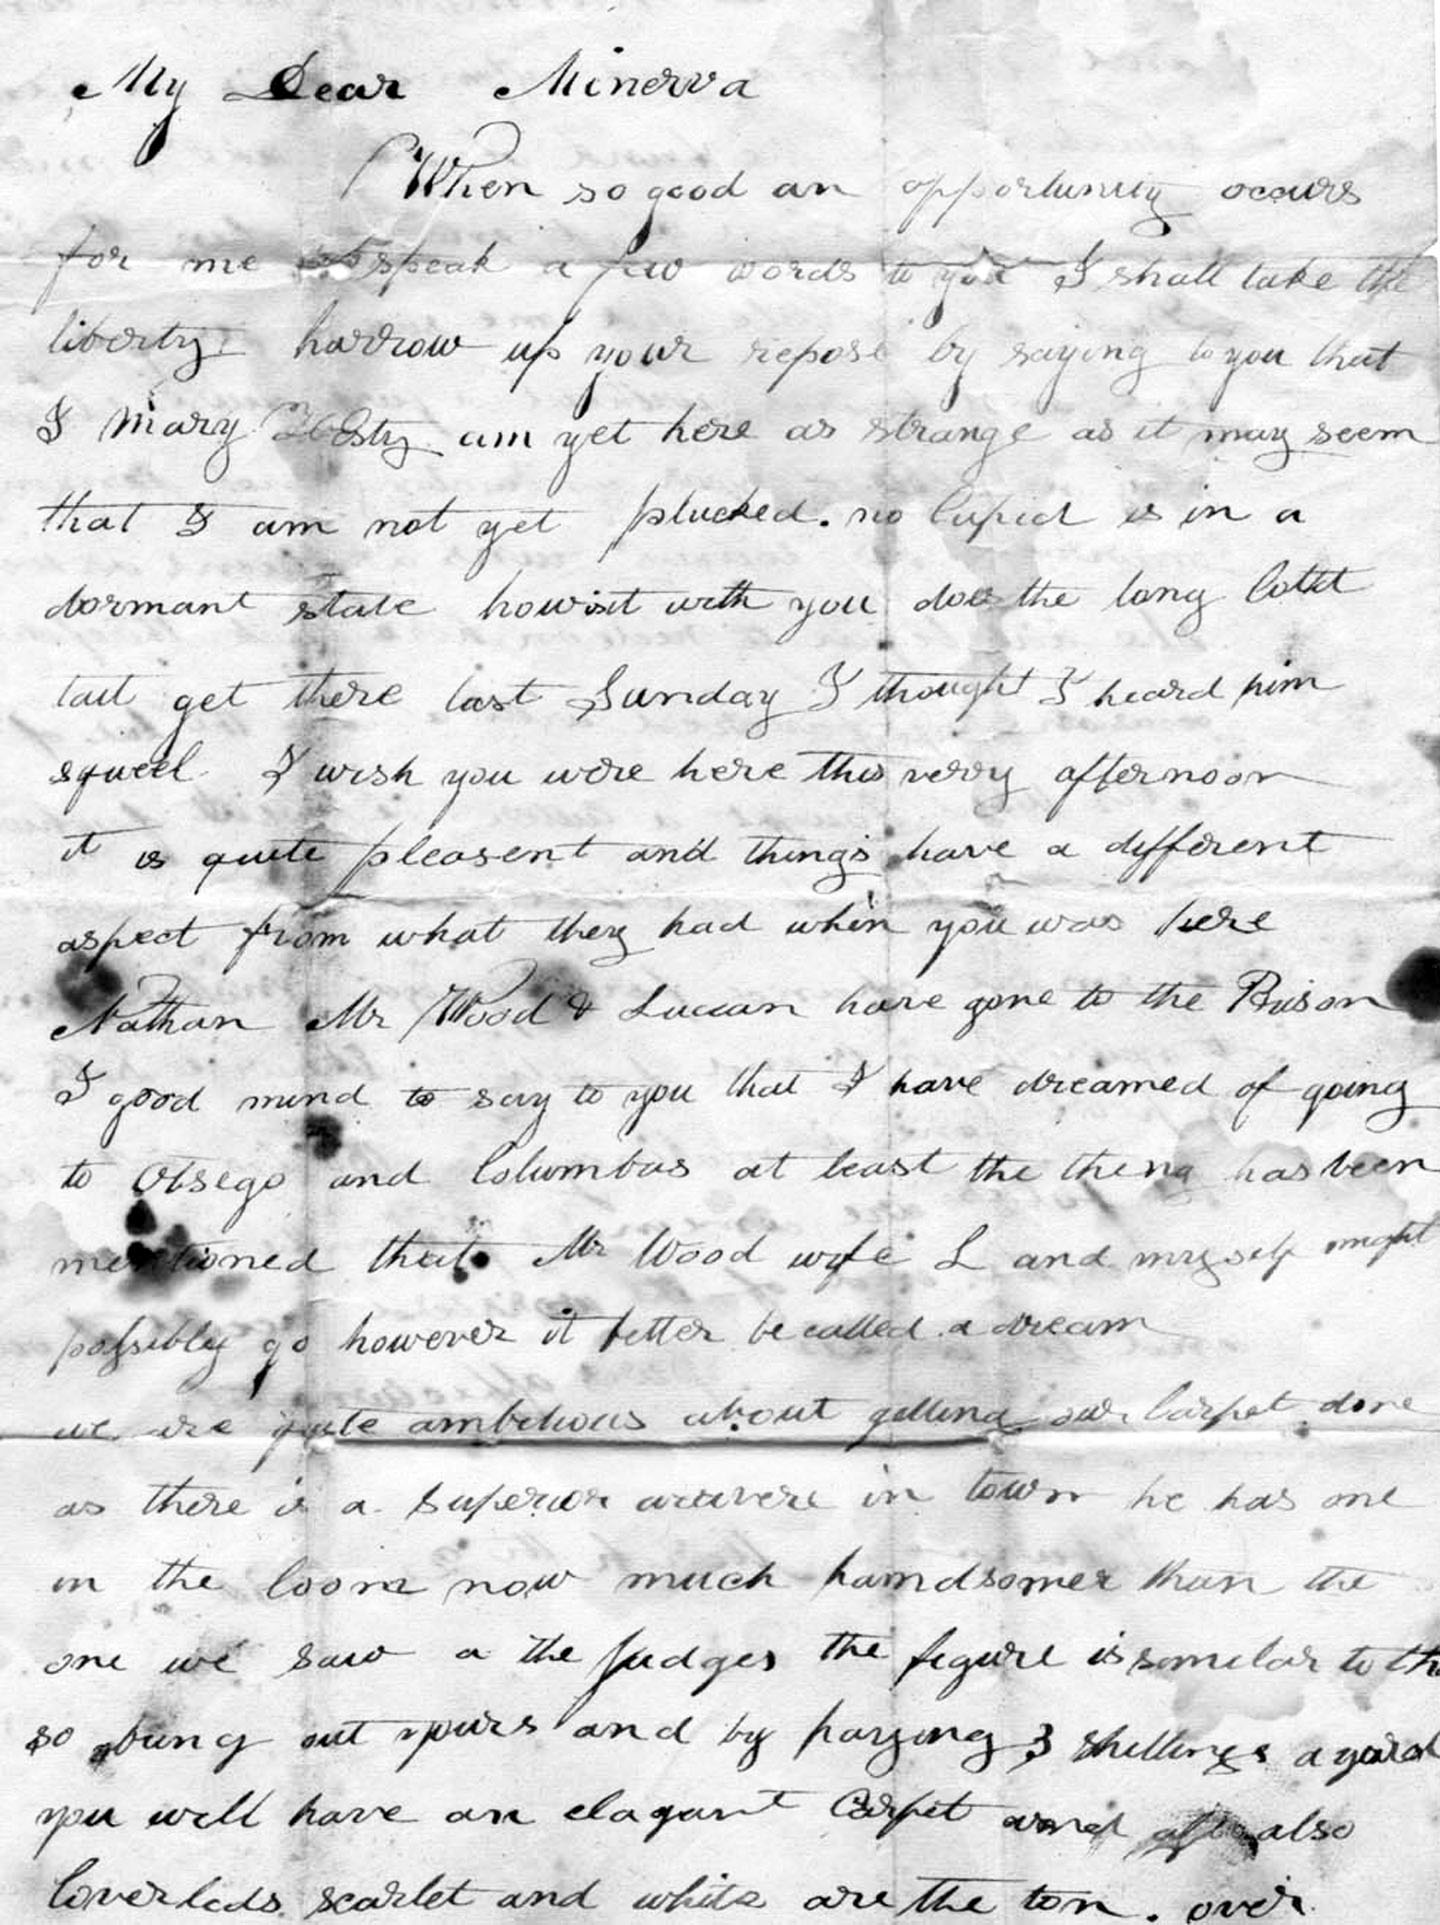 My Dear Minerva
When so good an opportunity occurs
for me to speak a few words to you I shall take the
liberty harrow up your repose by saying to you that
I Mary am yet here as strange as it may seem
that I am not yet plucked. no Cupid is in a
dormant state howisit with you does the long
tail get there last Sunday I thought I heard him
squeel. I wish you were here this verry afternoon
it is quite pleasent and things have a different
aspect from what they had when you was here
Nathan Mr Wood & Lucian have gone to the Prison
I good mind to say to you that I have dreamed of going
to Otsego and Columbus at least the thing has been
mentioned that Mr Wood wife L and myself might
possibly go however it better be called a dream
we are quite ambitious about getting our Carpet done
as there is a superior weavere in town he has one
in the loom now much handsomer than the
one we saw a the Judges the figure is somelar to the
so bring out yours and by paying 3 shillings a yard
you will have an elagant Carpet and also
Coverleds scarlet and white are the ton. over